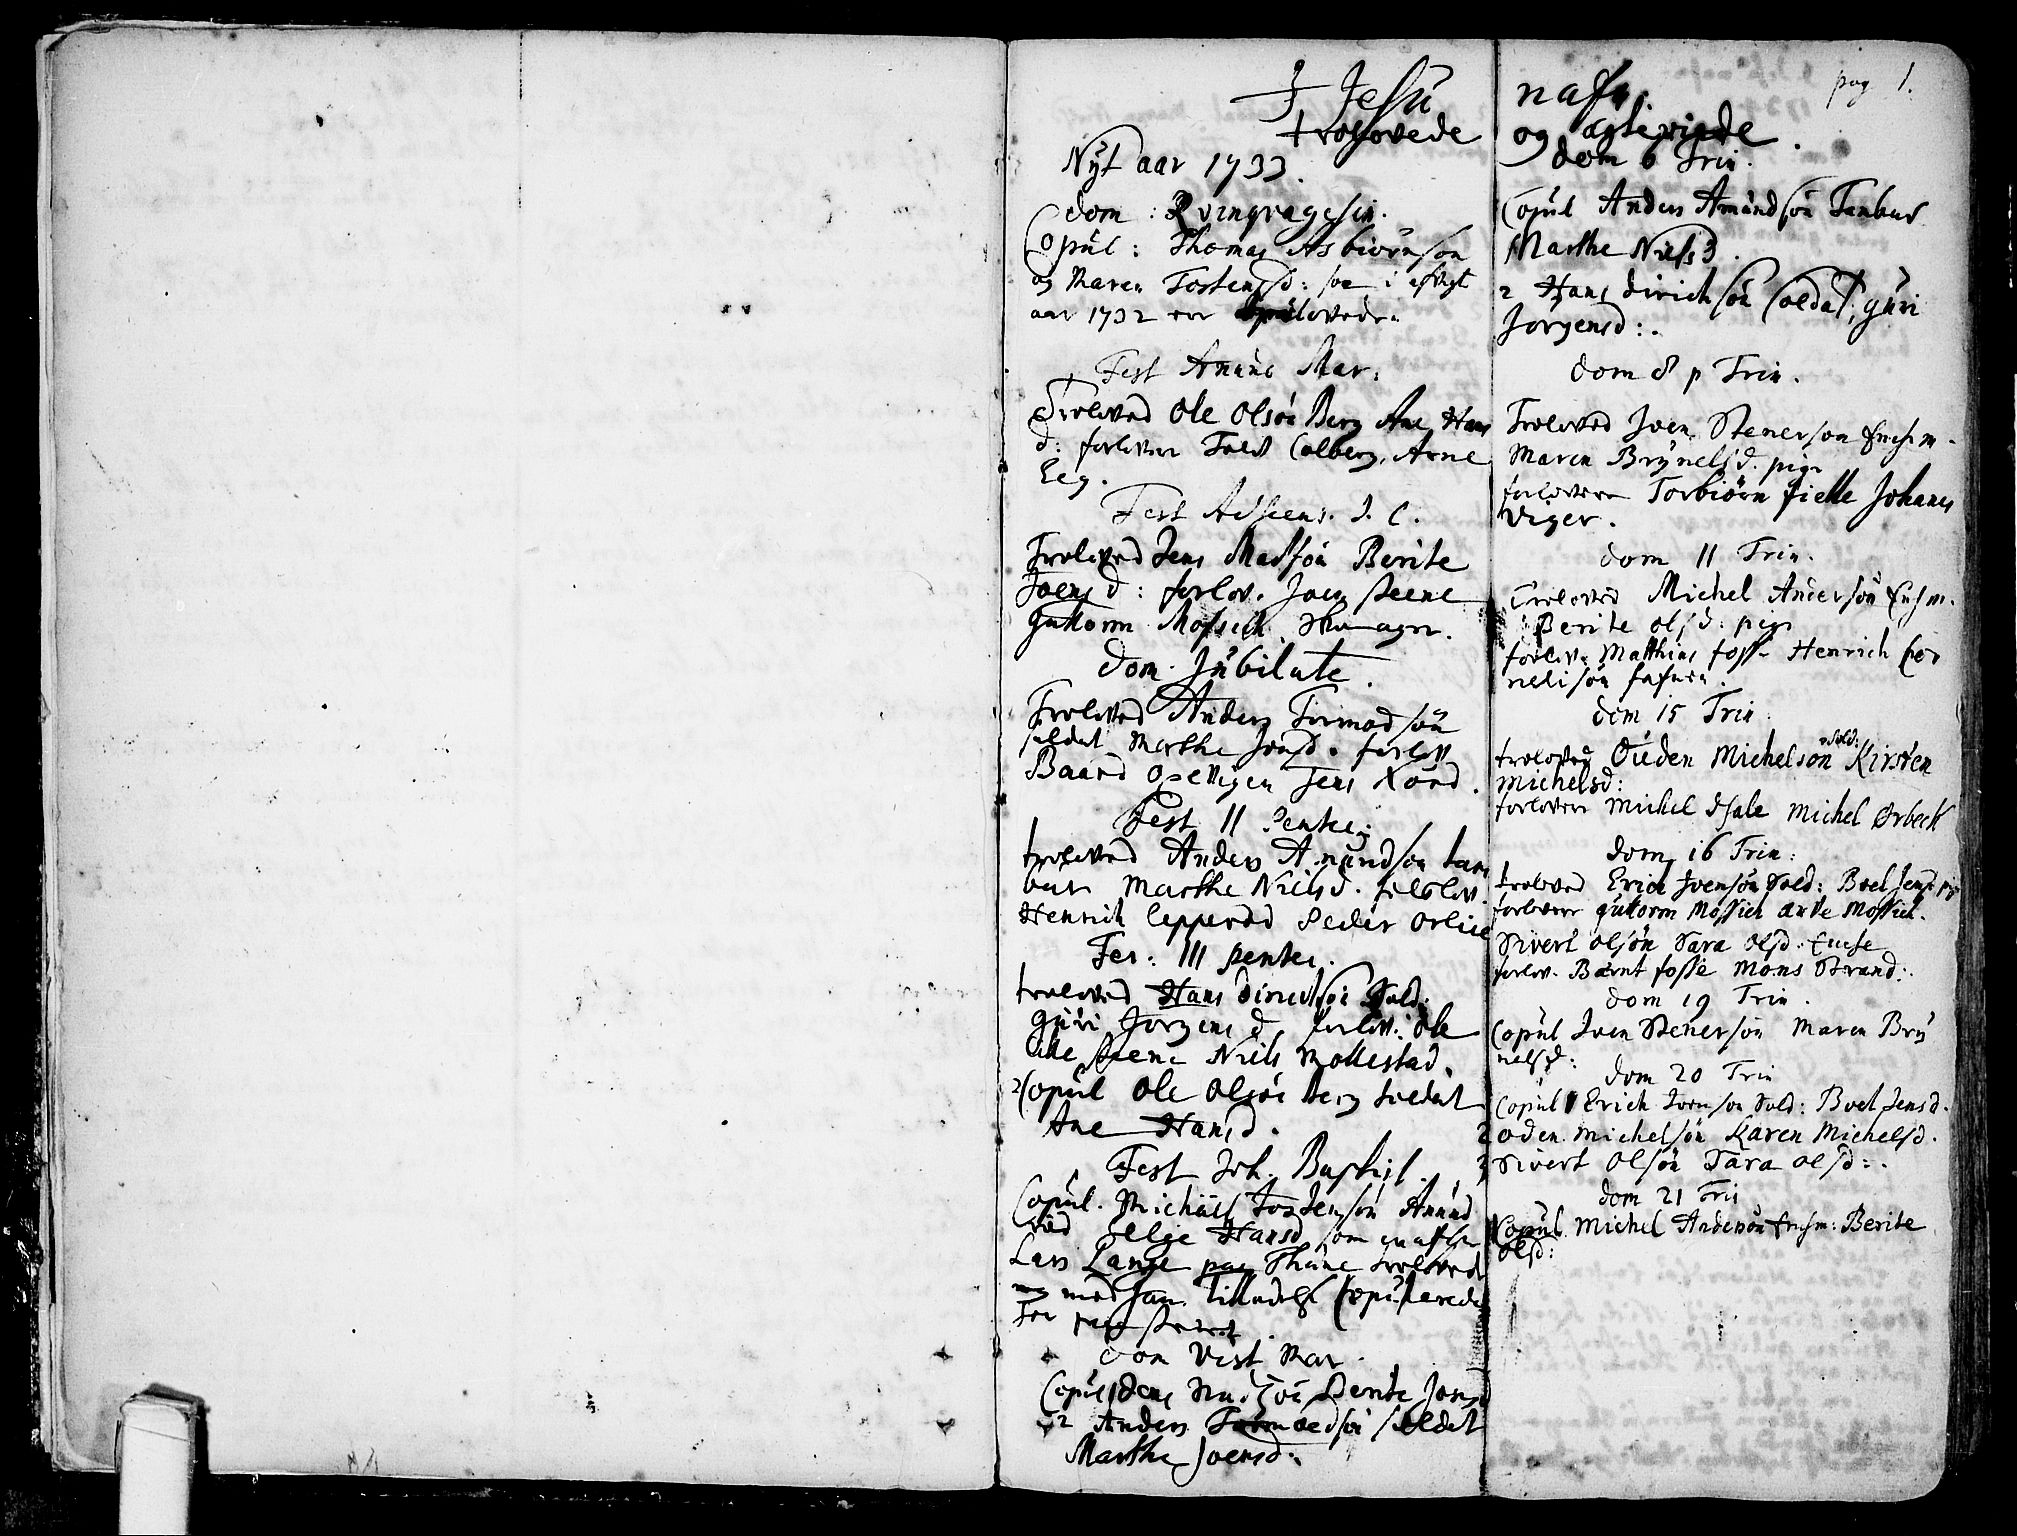 pag 1.
I Jesu nafn.
trolovede og ægtevigde
Nyt aar 1733.
dom: Qvinqvagesin.
Copul: Thomas Asbiörnsön
og Maren Tostensd: som i afvigt
aar 1732 er
Fest Anunc Mar.
Troloved Ole Olsön Berg Ane Hans
d: forlover Colberg, Arne
Eeg.
Fest Adscens. J. C.
Troloved Jens Madsön Berite
Joensd: forlov. Joen steene
Guttorm Mossich
dom. Jubilate.
Troloved Anders Tormodsön
soldat Marthe Jonsd. forlov
Baard Opevigen Jens Nord.
Fest II Pentec:
troloved Anders Amundsön tam
bur Marthe Nielsd. forlov.
Henrich Lepperöd Peder Orlie
Fer: III pentec.
troloved Hans Dirichsön Sold:
Guri Jorgensd. forlov: Ole
steene Niels Mollestad.
2 Copul Ole Olsön Berg soldat
Ane Hansd.
Fest Joh. Baptist.
Copul. Michäel Tostensön Amund
röd Elge Hansd som
Lars Lange paa Thune trolovede
og med Tilladelse Copulerede

dom Visit Mar.
Copul Jens Madsön Berite Jonsd
2 Anders Tormoedsön soldat
Marthe Joensd.
dom 6 Trin.
Copul Anders Amundsön Tambur
Marthe Nielsd.
2 Hans Dirichsön Soldat, Guri
Jorgensd:.
dom 8 p Trin.
Troloved Joen Stenersön Enchm.
Maren Brynelsd. pige
forlovere Torbiörn fielle Johanes
Viger.
dom 11 Trin.
Troloved Michel Andersön Enchm.
Berite Olsd. pige
forlov. Matthias foss Henrich Cor
nelisön
dom 15 Trin
troloved Ouden Michelsön Sold: Kirsten
Michelsd:
forlovere Michel dale Michel Ørbeck
dom 16 Trin:
troloved Erich Joensön Sold: Boel Jensd pig
forlovere Guttorm Mossich arve Mossich.
Sivert Olsön Sara Olsd. Encke
forlov. Bærnt fosse Mons Strand:.
dom 19 Trin.
Copul Joen Stenersön Maren Bry
nelsd:
dom 20 Trin
Copul Erich Joensön Sold: Boel Jensd.
2 Oden Michelsön Karen Michelsd.
3 Sivert Olsön Sara Olsd:.
dom 21 Trin
Copul Michel Andersön Enchm: Berite
Olsd: